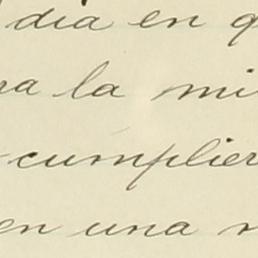 dia en q
ra la mi
cumplier
en una